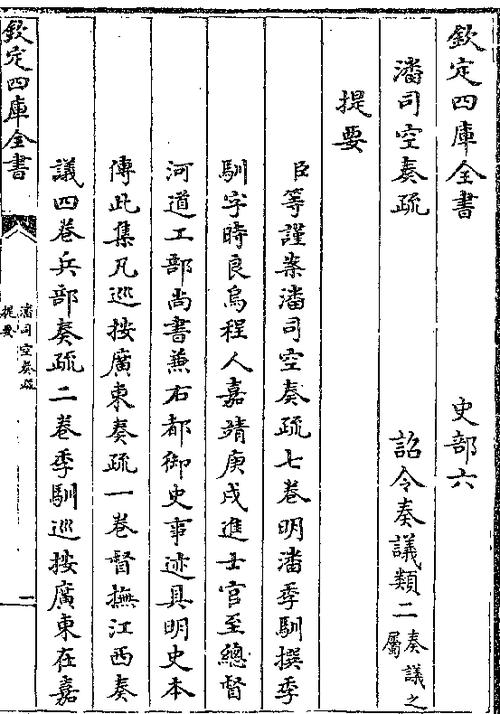 欽定四庫全書　史部六
潘司空奏疏　詔令奏議類二奏議之屬
提要
臣等謹案潘司空奏疏七卷明潘季馴撰季
馴字時良烏程人嘉靖庚戌進士官至總督
河道工部尚書兼右都御史事迹具明史本
傳此集凡巡按廣東奏疏一卷督撫江西奏
議四卷兵部奏疏二卷季馴巡按廣東在嘉
欽定四庫全書　潘司空奏疏提要　一